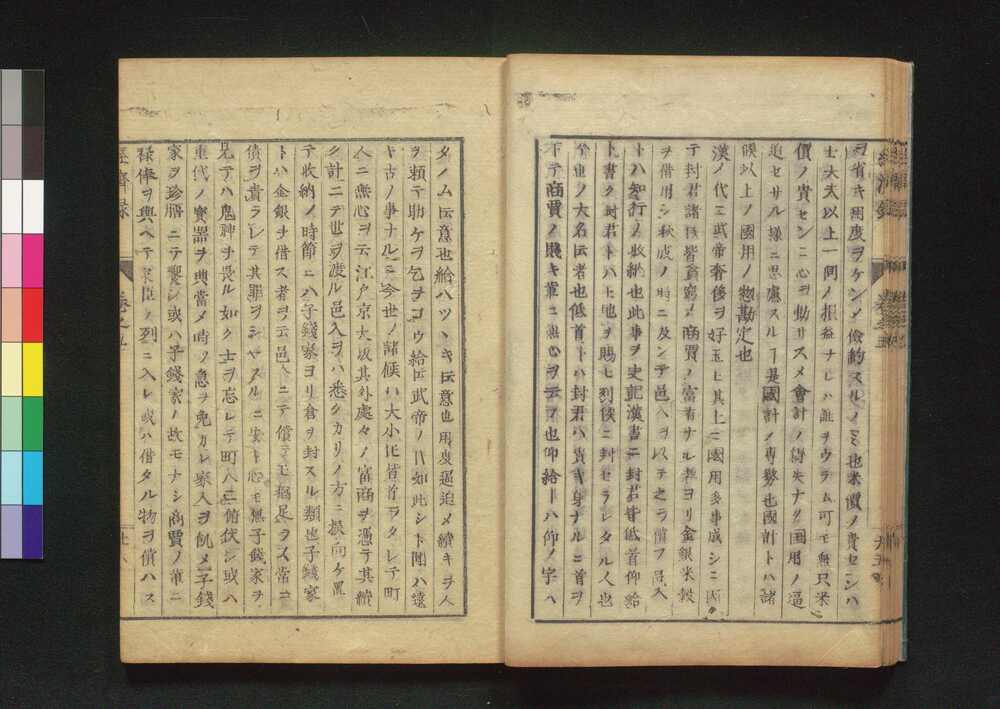 ヲ省キ用度ヲケンメ儉約スルノミ也米價ノ貴センハ
士大夫以上一同ノ損益ナレハ誰ヲウラム可モ無只米
價ノ貴センニ心ヲ動リスメ會計ノ得失ナク国用ノ逼
迫セサル様ニ思慮スルヿ是國計ノ専務也國計トハ諸
候以上ノ國用ノ惣勘定也
漢ノ代ニ武帝奢侈ヲ好玉ヒ其上ニ國用多事成シニ因
テ封君諸侯皆貧窮メ商賈ノ富有ナル者ヨリ金銀米穀
ヲ借用シ秋成ノ時ニ及ンテ邑入ヲ以テ之ヲ償フ邑入
トハ知行ノ收納也此事ヲ史記漢書ニ封君皆低首仰給
ト書ク封君トハ上地ヲ賜ヒ列侯ニ封セラレタル人也
今世ノ大名ト云者也低首トハ封君ハ貴キ身ナルニ首ヲ
下テ商賈ノ賤キ輩ニ無心ヲ云フ也仰給トハ仰ノ字ハ
タノムト云意也給ハツヽキト云意也用度逼迫メ續キヲ人
ヲ頼テ助ケヲ乞ヲコウ給ト云武帝ノ日如此シト聞ハ遠
キ古ノ事ナルニ今世ノ諸候ハ大小ト正皆首ヲタレテ町
人ニ無心ヲ云江戸京大坂其外處々ノ富商ヲ憑テ其續
ク計ニテ世ヲ渡ル邑入ヲハ悉クカリノ方ニ振向ケ置
テ收納ノ時節ニハ子錢家ヨリ倉ヲ封スル類也子錢家
トハ金銀ヲ借ス者ヲ云邑入ニテ償テモ猶足ラス常ニ
債ヲ責ラレテ其罪ヲシヤスルニ安キ心モ無子錢家ヲ
見テハ鬼神ヲ畏ル如ク士ヲ忘レテ町人ニ俯伏シ或ハ
重代ノ寶器ヲ典當メ時ノ急ヲ免カレ家人ヲ飢メ子錢
家ヲ珍膳ニテ饗シ或ハ子錢家ノ故モナシ商賈ノ輩ニ
禄俸ヲ與ヘテ家臣ノ列ニ入レ或ハ借タル物ヲ償ハス